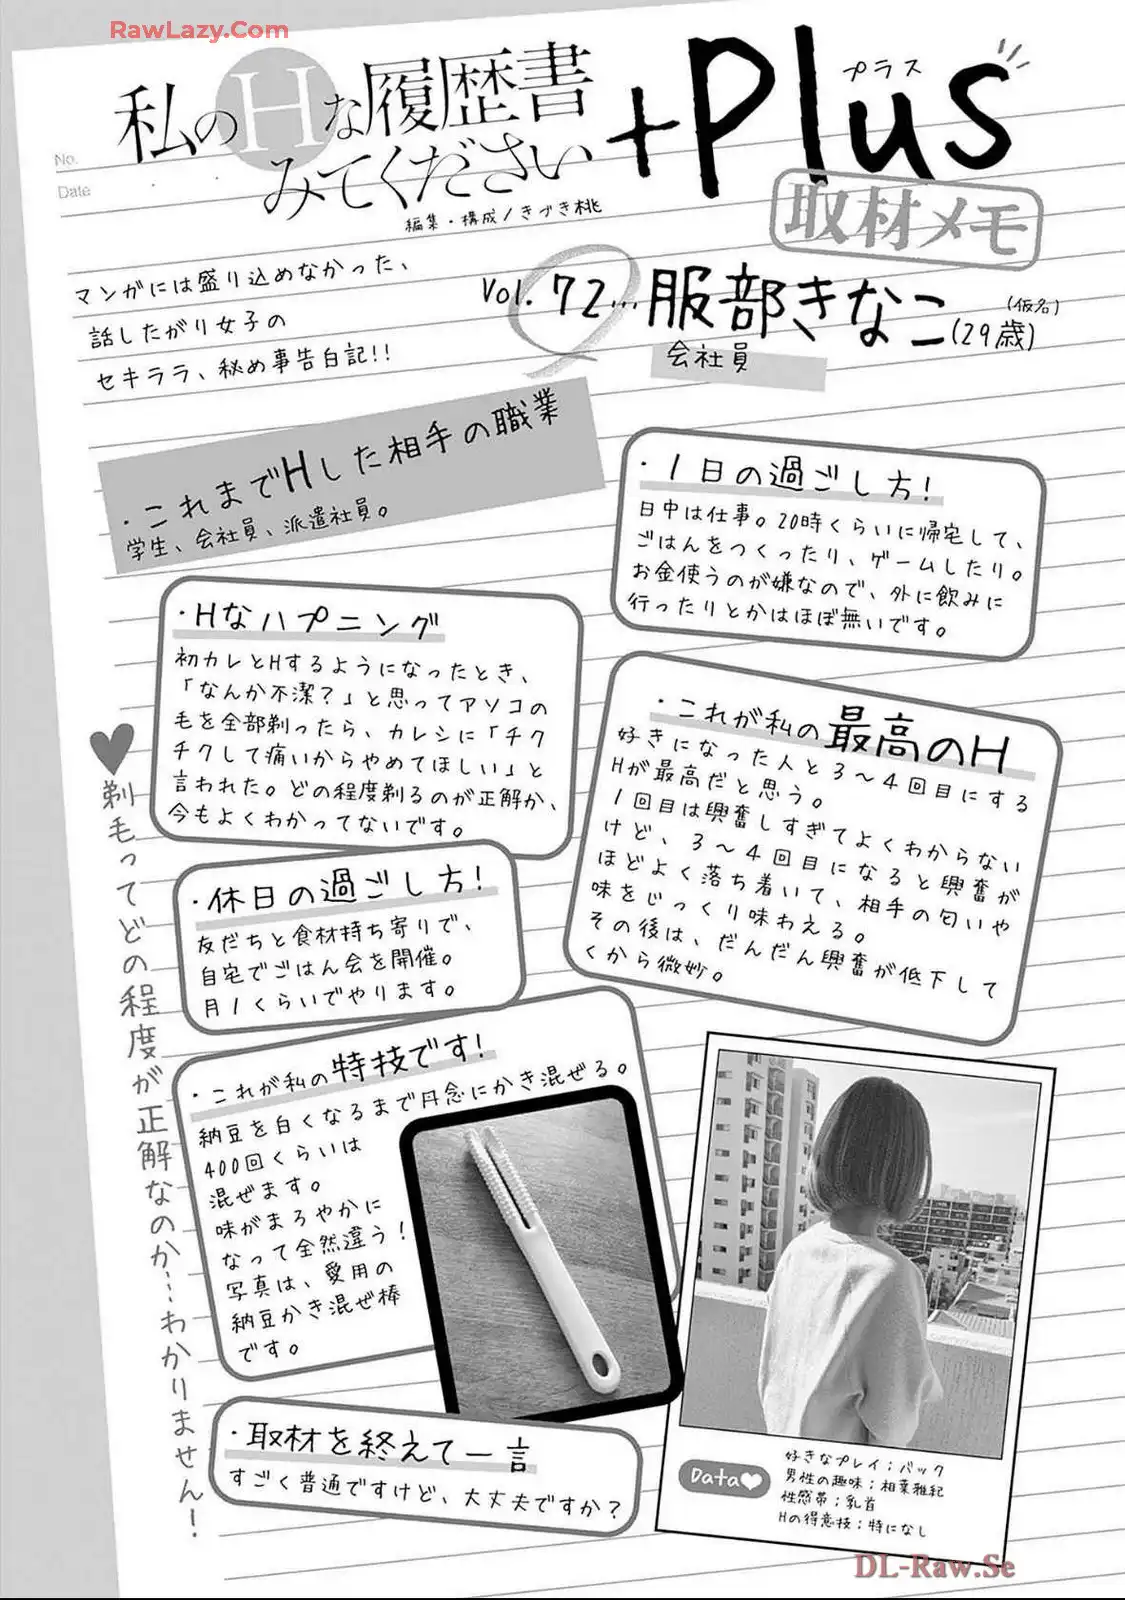 RawLazy.Com
私のHな履歴書
みてください
+Plus
プラス
取材メモ
No.
Date
編集・構成/きづき桃
マンガには盛り込めなかった、
話したがり女子の
セキララ、秘め事告白記!!
Vol.72...服部きなこ
(仮名)
(29歳)
会社員
・これまでHした相手の職業
学生、会社員、派遣社員。
・1日の過ごし方!
日中は仕事。20時くらいに帰宅して、
ごはんをつくったり、ゲームしたり。
お金使うのが嫌なので、外に飲みに
行ったりとかはほぼ無いです。
・Hなハプニング
初カレとHするようになったとき、
「なんか不潔?」と思ってアソコの
毛を全部剃ったら、カレシに「チク
チクして痛いからやめてほしい」と
言われた。どの程度剃るのが正解か、
今もよくわかってないです。
・これが私の最高のH
好きになった人と3〜4回目にする
Hが最高だと思う。
1回目は興奮しすぎてよくわからない
けど、3〜4回目になると興奮が
ほどよく落ち着いて、相手の匂いや
味をじっくり味わえる。
その後は、だんだん興奮が低下して
くから微妙。
・休日の過ごし方!
友だちと食材持ち寄りで、
自宅でごはん会を開催。
月1くらいでやります。
・これが私の特技です!
納豆を白くなるまで丹念にかき混ぜる。
400回くらいは
混ぜます。
味がまろやかに
なって全然違う!
写真は、愛用の
納豆かき混ぜ棒
です。
♥剃毛ってどの程度が正解なのか…わかりません!
・取材を終えて一言
すごく普通ですけど、大丈夫ですか?
Data♥
好きなプレイ;バック
男性の趣味;相葉雅紀
性感帯;乳首
Hの得意技;特になし
DL-Raw.Se